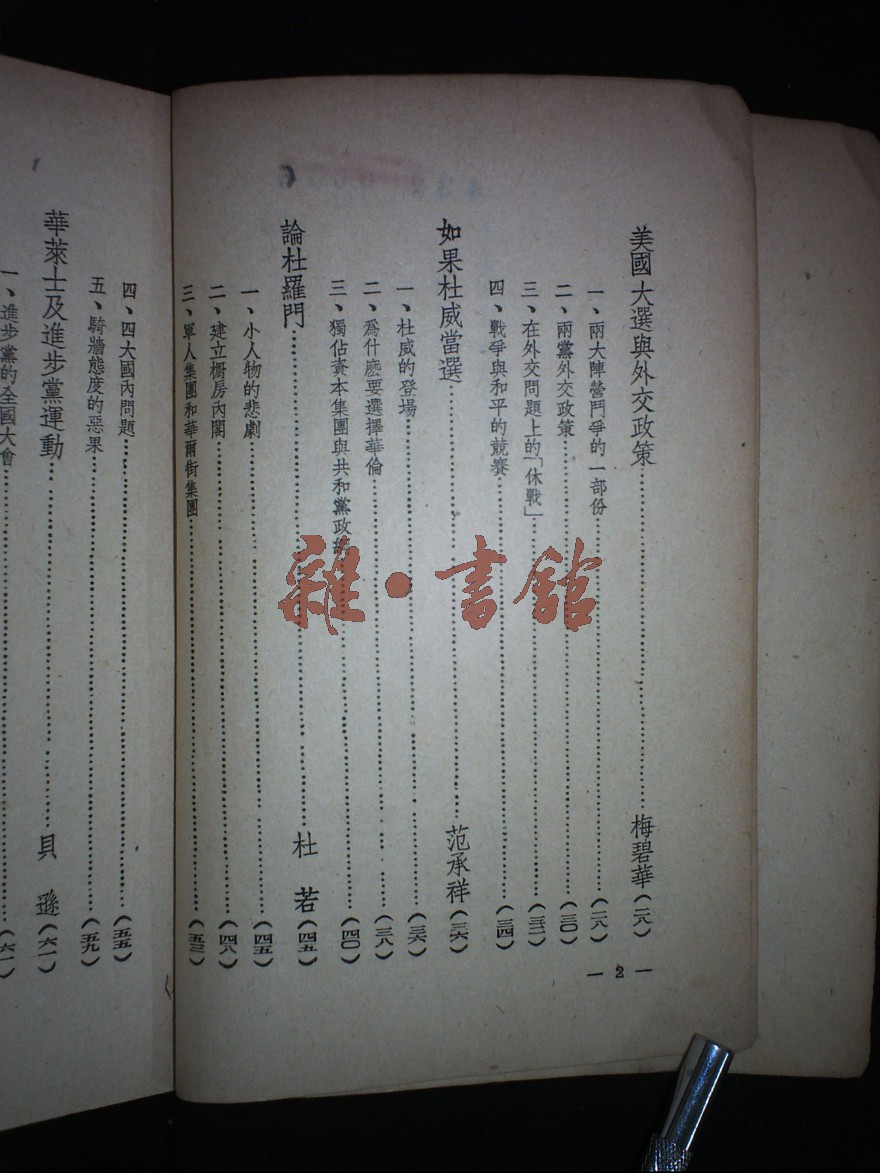 美國大選與外交政策………梅碧華(二八)
一、兩大陣營鬥爭的一部份………(二八)
二、兩黨外交政策………(三〇)
三、在外交問題上的「休戰」………(三二)
四、戰爭與和平的競賽………(三四)
如果杜威當選………范承祥(三六)
一、杜威的登場………(三六)
二、爲什麽要選擇華倫………(三八)
三、獨佔資本集團與共和黨政綱………(四〇)
論杜羅門………杜 若(四五)
一、小人物的悲劇………(四五)
二、建立櫥房內閣………(四八)
三、軍人集團和華爾街集團………(五三)
— 2 —
四、四大國內問題………(五五)
五、騎牆態度的惡果………(五九)
華萊士及進步黨運動………貝 遜(六一)
一、進步黨的全國大會………(六一)
雜·書館